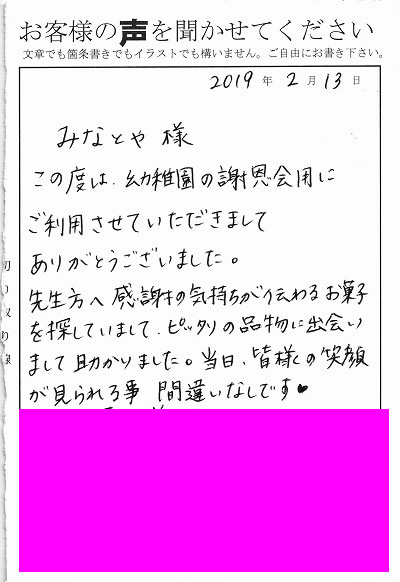 お客様の声を聞かせてください
文章でも箇条書きでもイラストでも構いません。ご自由にお書き下さい。
2019 年 2 月 13 日
みなとや 様
この度は、幼稚園の謝恩会用に
ご利用させていただきまして
ありがとうございました。
先生方へ 感謝の気持ちが伝わるお菓子
を探していまして、ピッタリの品物に出会い
まして助かりました。当日、皆様の笑顔
が見られる事 間違いなしです♥
切り取り線